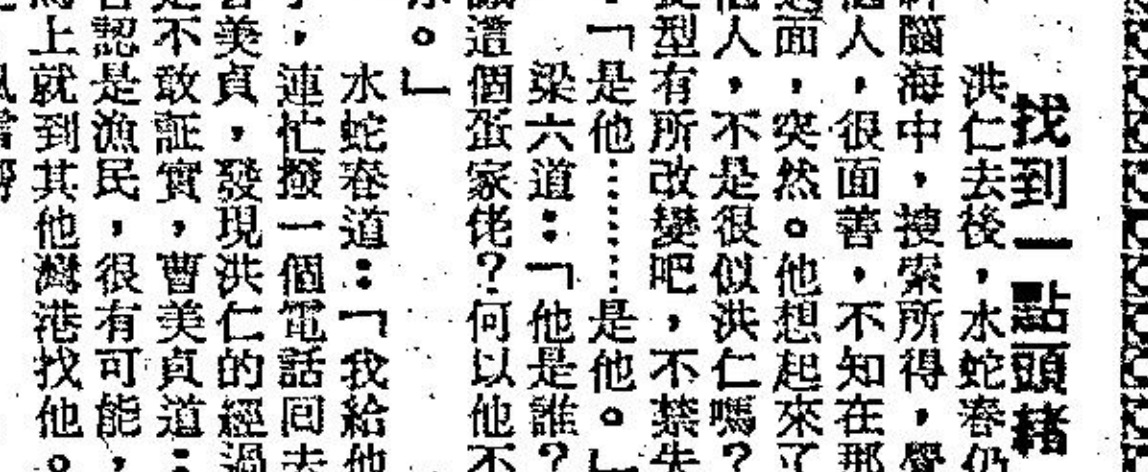 找到一點頭緒
洪仁去後，水蛇春仍
腦海中，搜索所得，覺
個人，很面善，不知在那
面，突然。他想起來了
個人，不是很似洪仁嗎？
型有所改變吧，不禁失
：「是他……是他。」
梁六道：「他是誰？
這個蛋家佬？何以他不
。」
水蛇春道：「我給他
，連忙撥一個電話回去
美貞，發現洪仁的經過
不敢証實，曹美貞道：
認是漁民，很有可能，
上就到其他灣港找他。